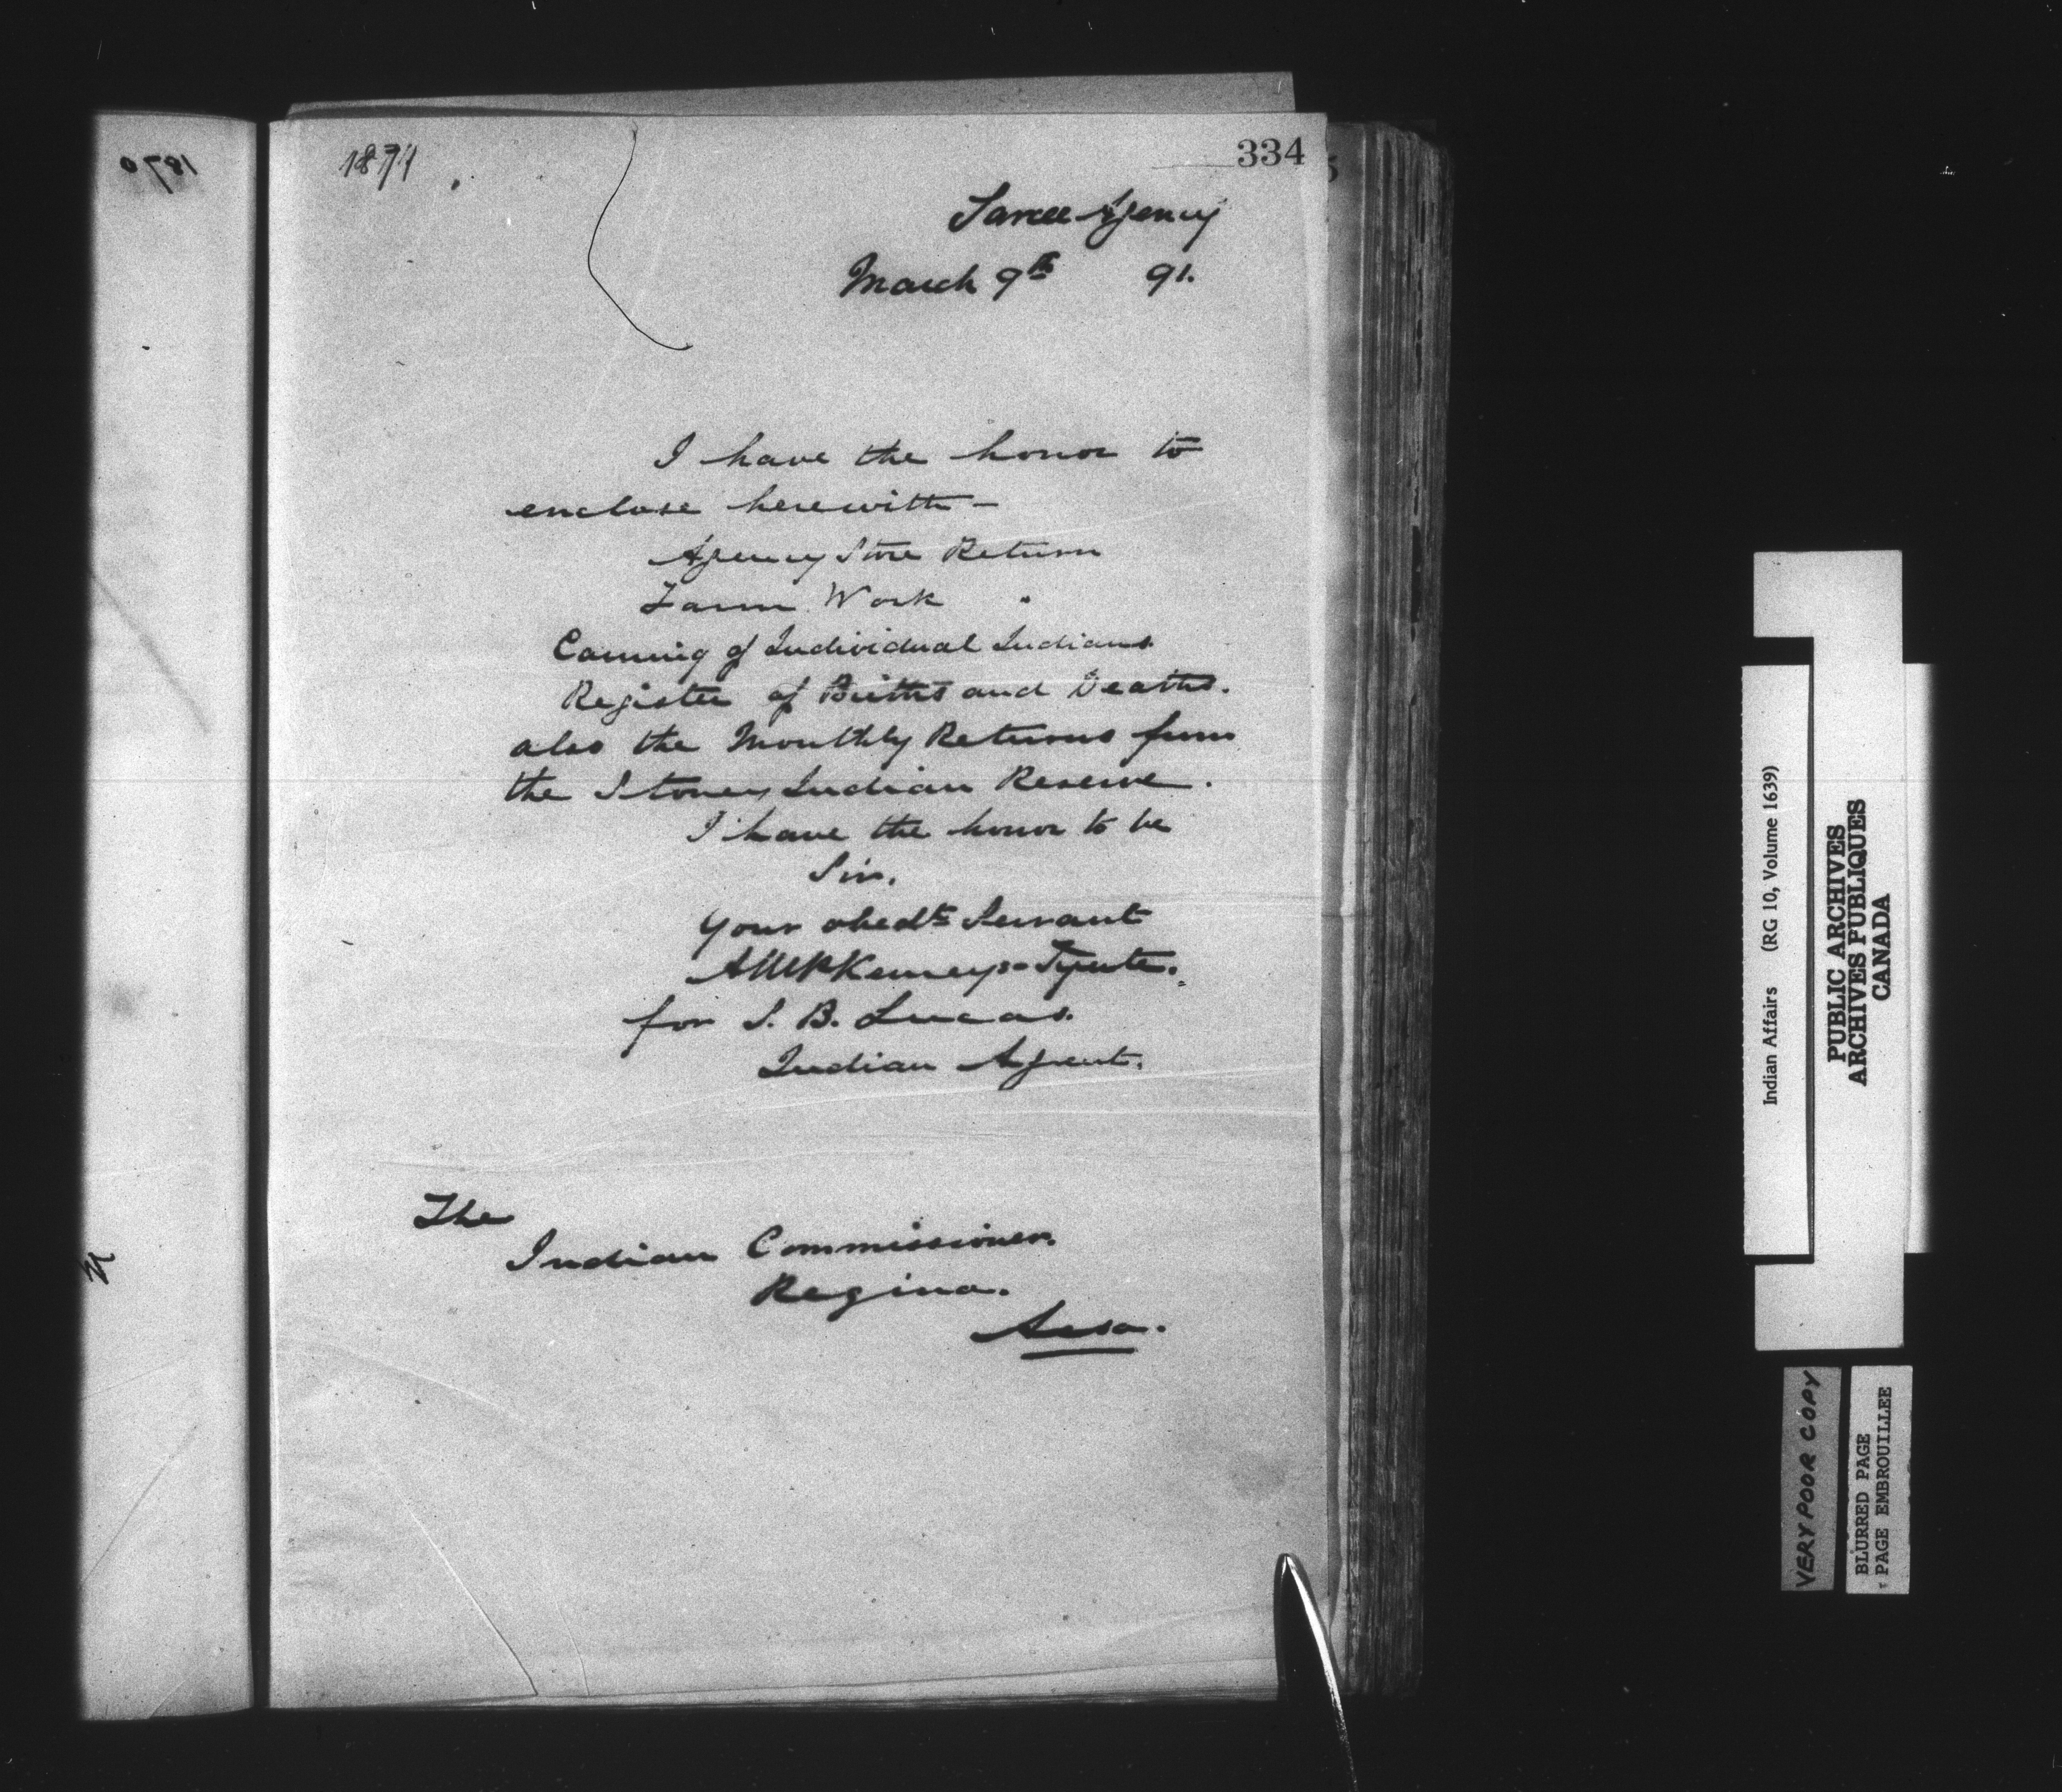 1871
334
Sarcee Agency
March 9th 91.
I have the honor to
enclose herewith -
Agency Store Return
Farm Work "
Earning of Individual Indians
Register of Births and Deaths.
also the Monthly Returns from
the Stoney Indian Reserve.
I have the honor to be
Sir.
Your obedt Servant
for S. B. Lucas.
Indian Agent.
The
Indian Commissioner.
Regina.
Assa.
1870
Indian Affairs (RG 10, Volume 1639)
PUBLIC ARCHIVES
ARCHIVES PUBLIQUES
CANADA
VERY POOR COPY
BLURRED PAGE
PAGE EMBROUILLEE